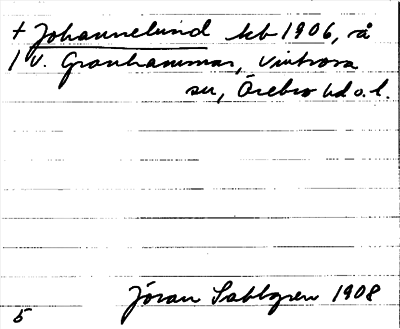 + Johannelund kb 1906, rå
/ v. Granhammar, Vintrosa
sn, Örebro hd o. l.
Jöran Sahlgren 1908
5